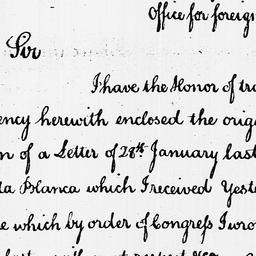 Office for foreign
Sir
I have the Honor of tra
ency herewith enclosed the orig
n of a Letter of 28th January last
ta Blanca which I received Yeste
e which by order of Congress I wro